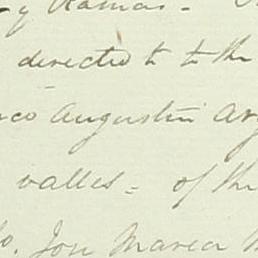 y Ramos -
directed to to the
co Augustin Ar
valles = of the
do. Jose Maria